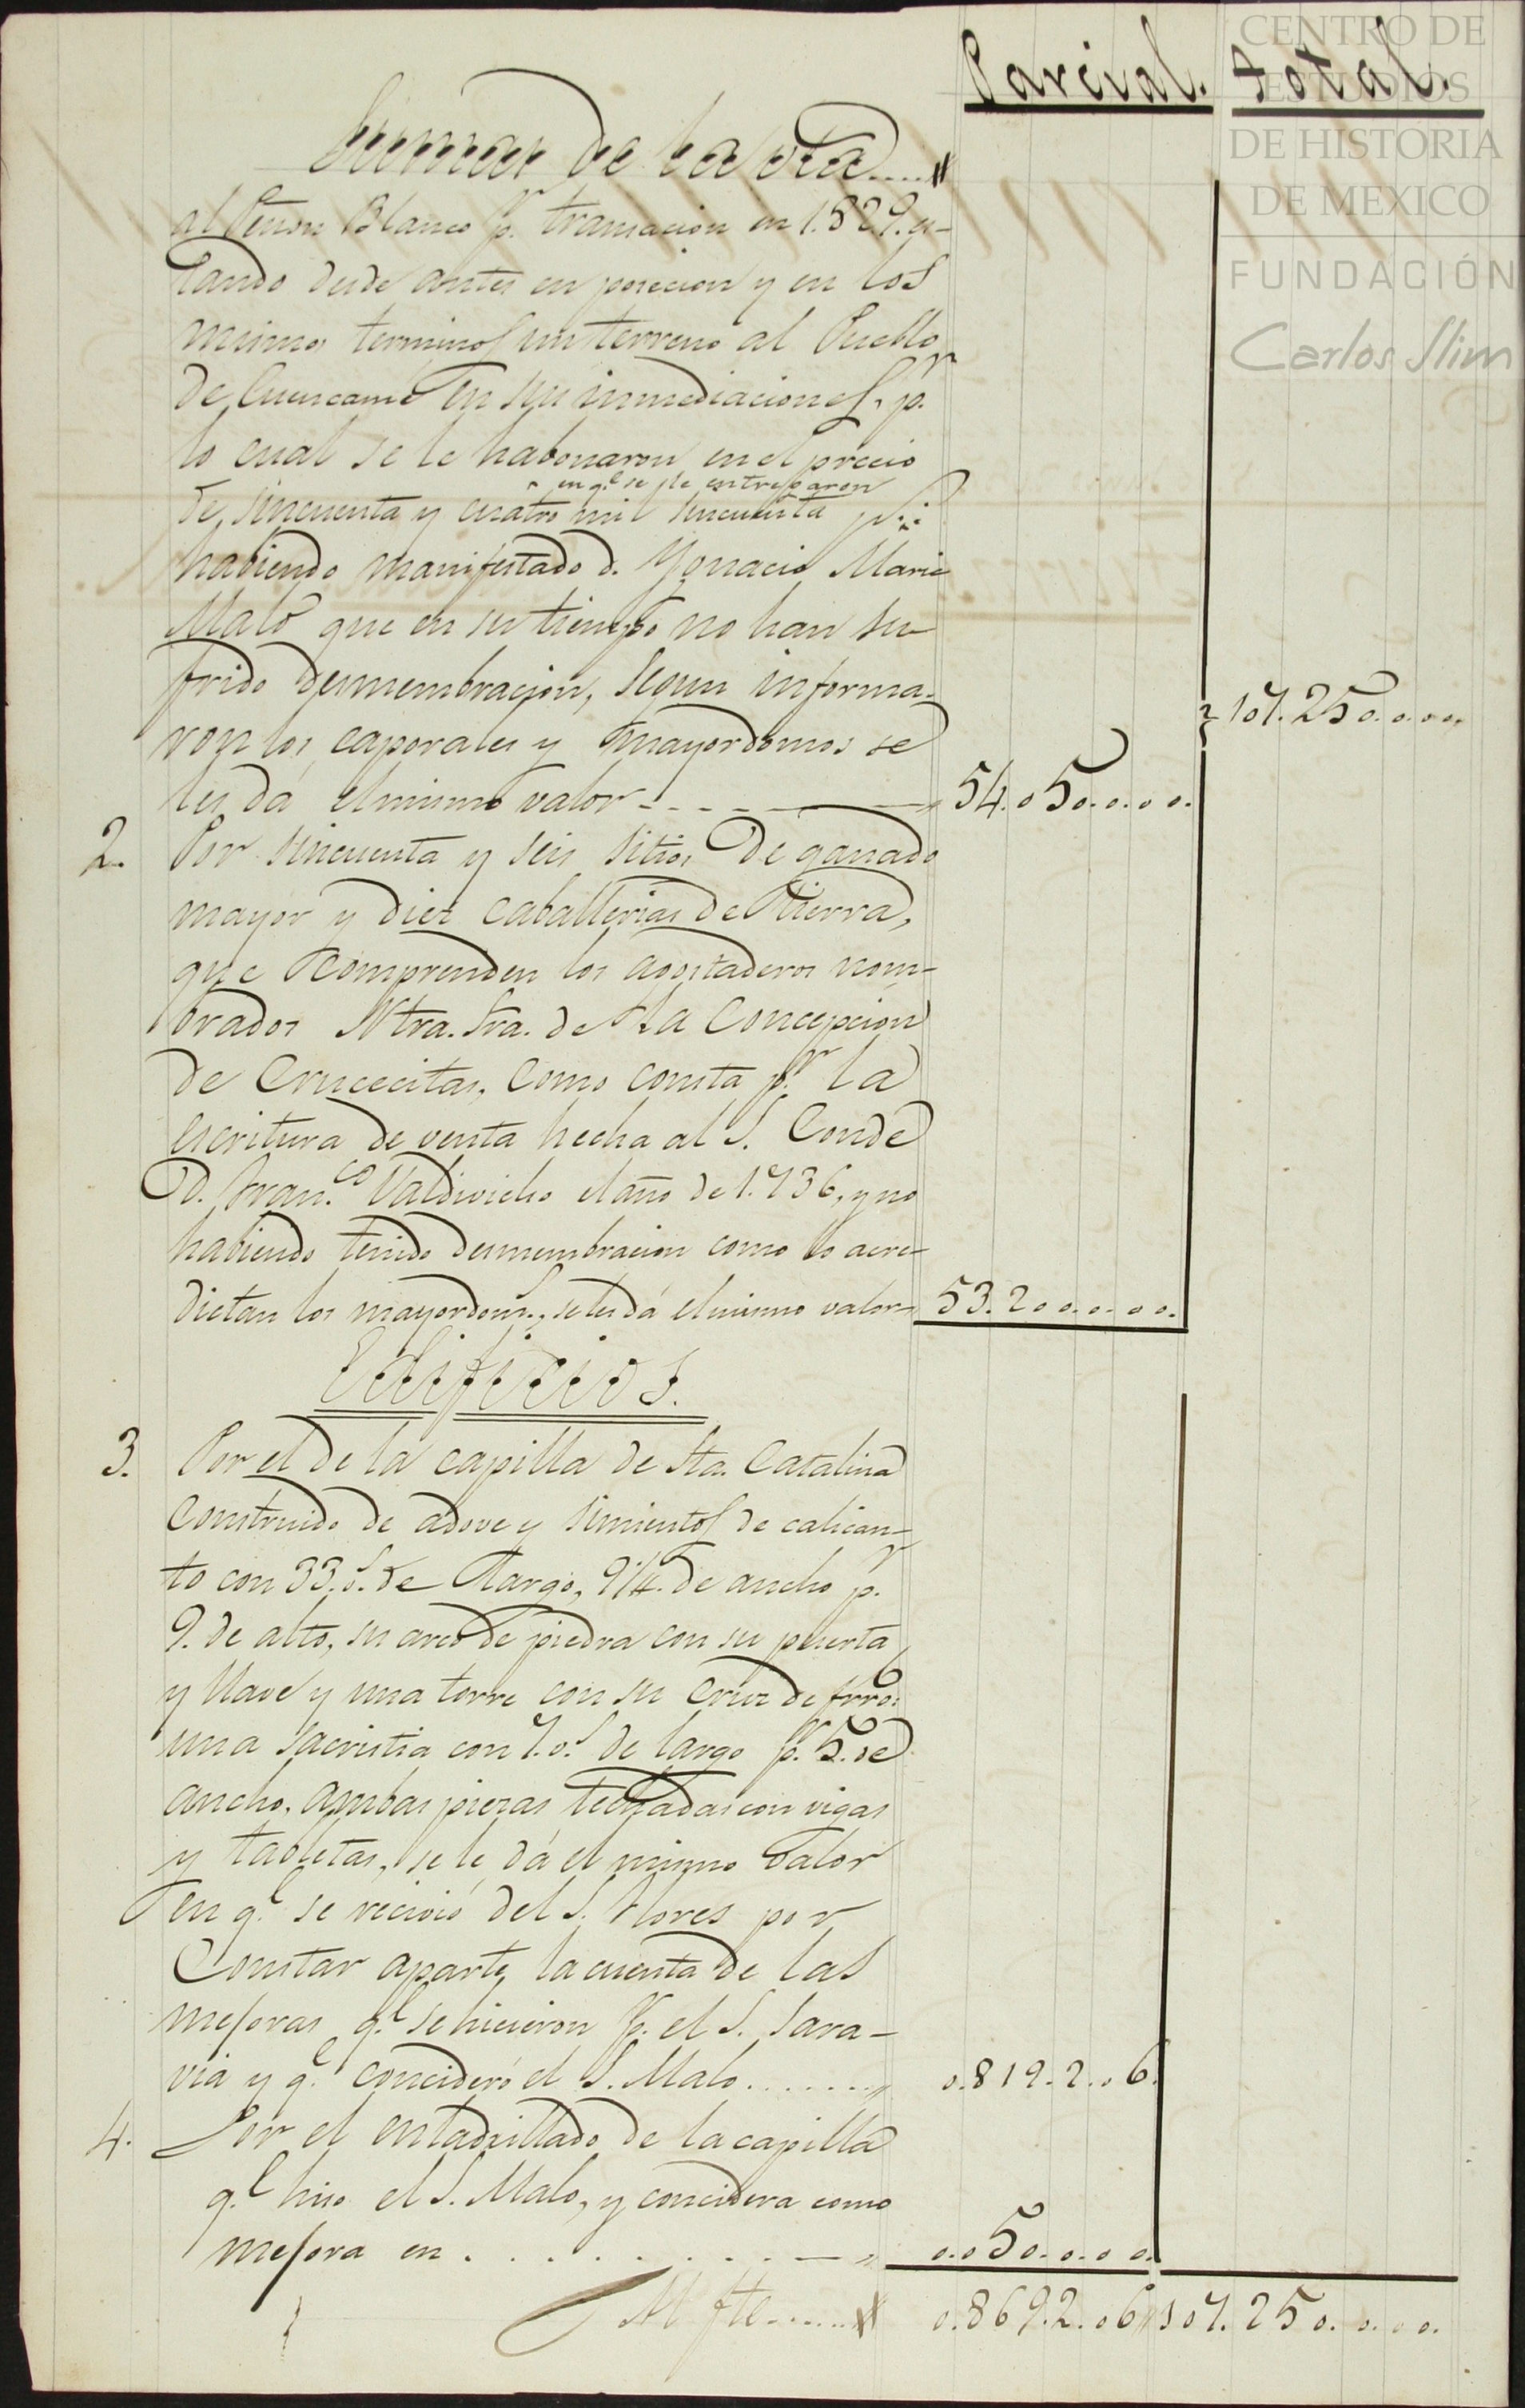 Parcial. Total.
Sumas de la vta.....
al Peñon Blanco pr. transacion en 1.829. es-
tando desde antes en posecion y en los
mismos terminos un terreno al Pueblo
de Cuencamé en sus inmediaciones, pr.
lo cual se le habonaron en el precio
en qe. se le entregaron
de, sincuenta y cuatro mil sincuenta ps.:
habiendo manifestado d. Ygnacio Maria
Malo que en su tiempo no han su-
frido desmembracion, segun informa-
ron los caporales y mayordomos se
les dá el mismo valor - - - - 54.050..0.0.0. 107.250..0.0.0.
2. Por sincuenta y seis sitios de ganado
mayor y diez caballerias de tierra,
que comprenden los agostaderos nom-
brados Ntra. Sra. de la Concepcion
de Crucecitas, como consta pr. la
escritura de venta hecha al S. Conde
D. Fran.co Valdivielso el año de 1.736, y no
habiendo tenido desmembracion como lo acre-
dictan los mayordoms., se les dá el mismo valor 53.200..0.0.0.
Edificios.
3. Por el de la capilla de Sta. Catalina
construido de adove y simientos de calican-
to con 33.vs. de largo, 9 1/4. de ancho pr.
9. de alto, su arco de piedra con su puerta
y llave y una torre con su cruz de frro:
una sacristia con 7.vs. de largo pr. 5. de
ancho, ambas piezas techadas con vigas
y tabletas, se le dá el mismo valor
en qe. se recivió del S. Flores por
constar aparte la cuenta de las
mejoras qe. se hicieron pr. el S. Sara-
via y qe. concideró el S. Malo........ 0.819.2..06.
4. Por el enladrillado de la capilla
qe. hiso el S. Malo, y concidera como
mejora en . . . . . . . . 0.050..0.0.0.
Al fte....... 0.869.2..06 107.250..0.0.0.
CENTRO DE
ESTUDIOS
DE HISTORIA
DE MEXICO
FUNDACIÓN
Carlos Slim